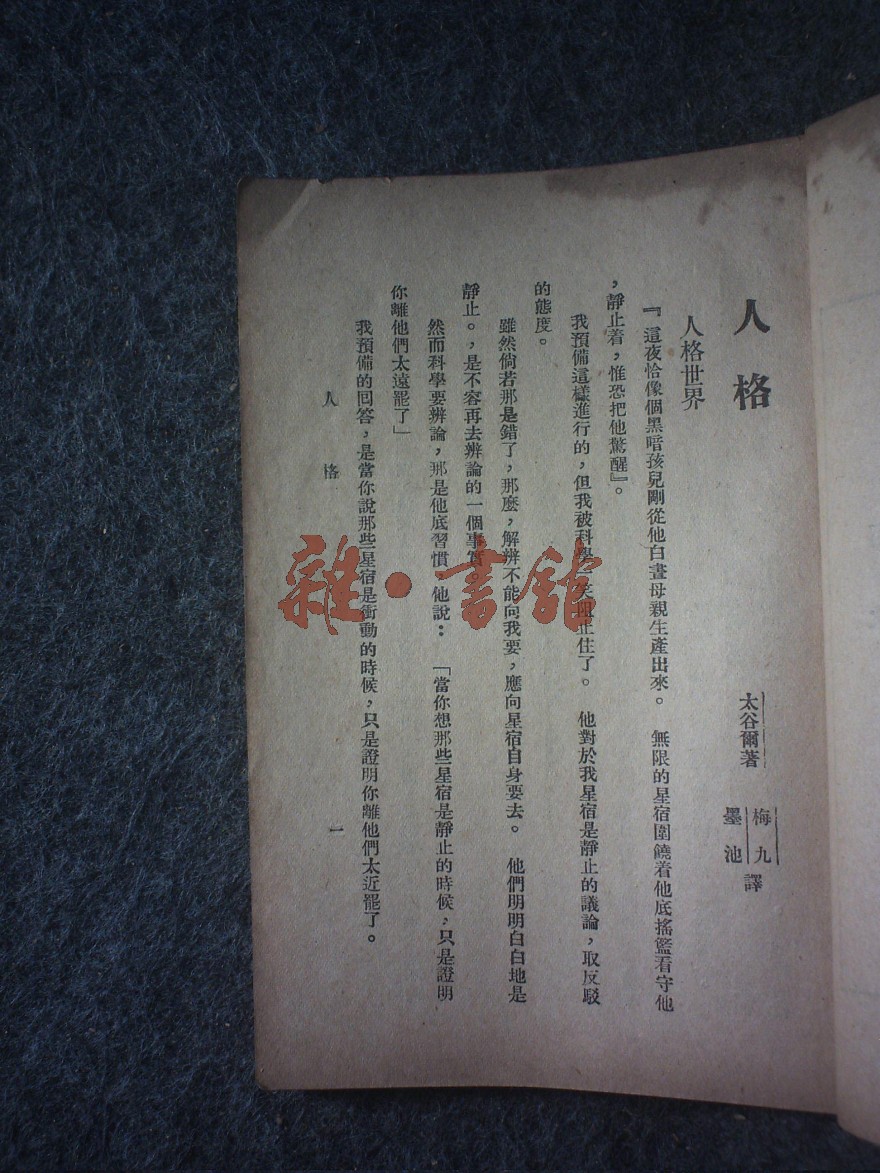 人格
太谷爾著
梅九
墨池
譯
人格世界
『這夜恰像個黑暗孩兒剛從他白晝母親生產出來。 無限的星宿圍饒着他底搖籃看守他
，靜止着，惟恐把他驚醒』。
我預備這樣進行的，但我被科學一笑阻止住了。 他對於我星宿是靜止的議論，取反駁
的態度。
雖然倘若那是錯了，那麼，解辨不能向我要，應向星宿自身要去。 他們明明白白地是
靜止。，是不容再去辨論的一個事實
然而科學要辨論，那是他底習慣 他說：「當你想那些星宿是靜止的時候，只是證明
你離他們太遠罷了」
我預備的回答，是當你說那些星宿是衝動的時候，只是證明你離他們太近罷了。
人格
一
雜·書館